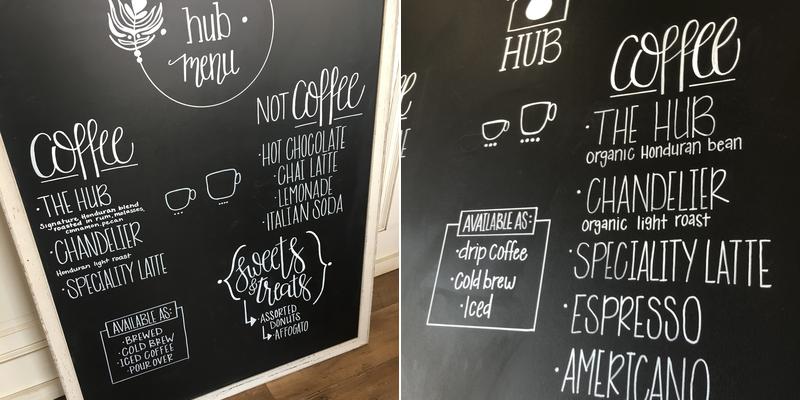 hub
menu
coffee
• THE HUB
Signature Honduran blend
roasted in rum, molasses,
cinnamon, pecan
• CHANDELIER
Honduran light roast
• SPECIALITY LATTE
AVAILABLE AS:
• BREWED
• COLD BREW
• ICED COFFEE
• POUR OVER
NOT coffee
• HOT CHOCOLATE
• CHAI LATTE
• LEMONADE
• ITALIAN SODA
sweets
& treats
ASSORTED
DONUTS
AFFOGATO
HUB
coffee
• THE HUB
organic Honduran bean
• CHANDELIER
organic light roast
• SPECIALITY LATTE
• ESPRESSO
• AMERICANO
AVAILABLE AS:
• drip coffee
• cold brew
• Iced